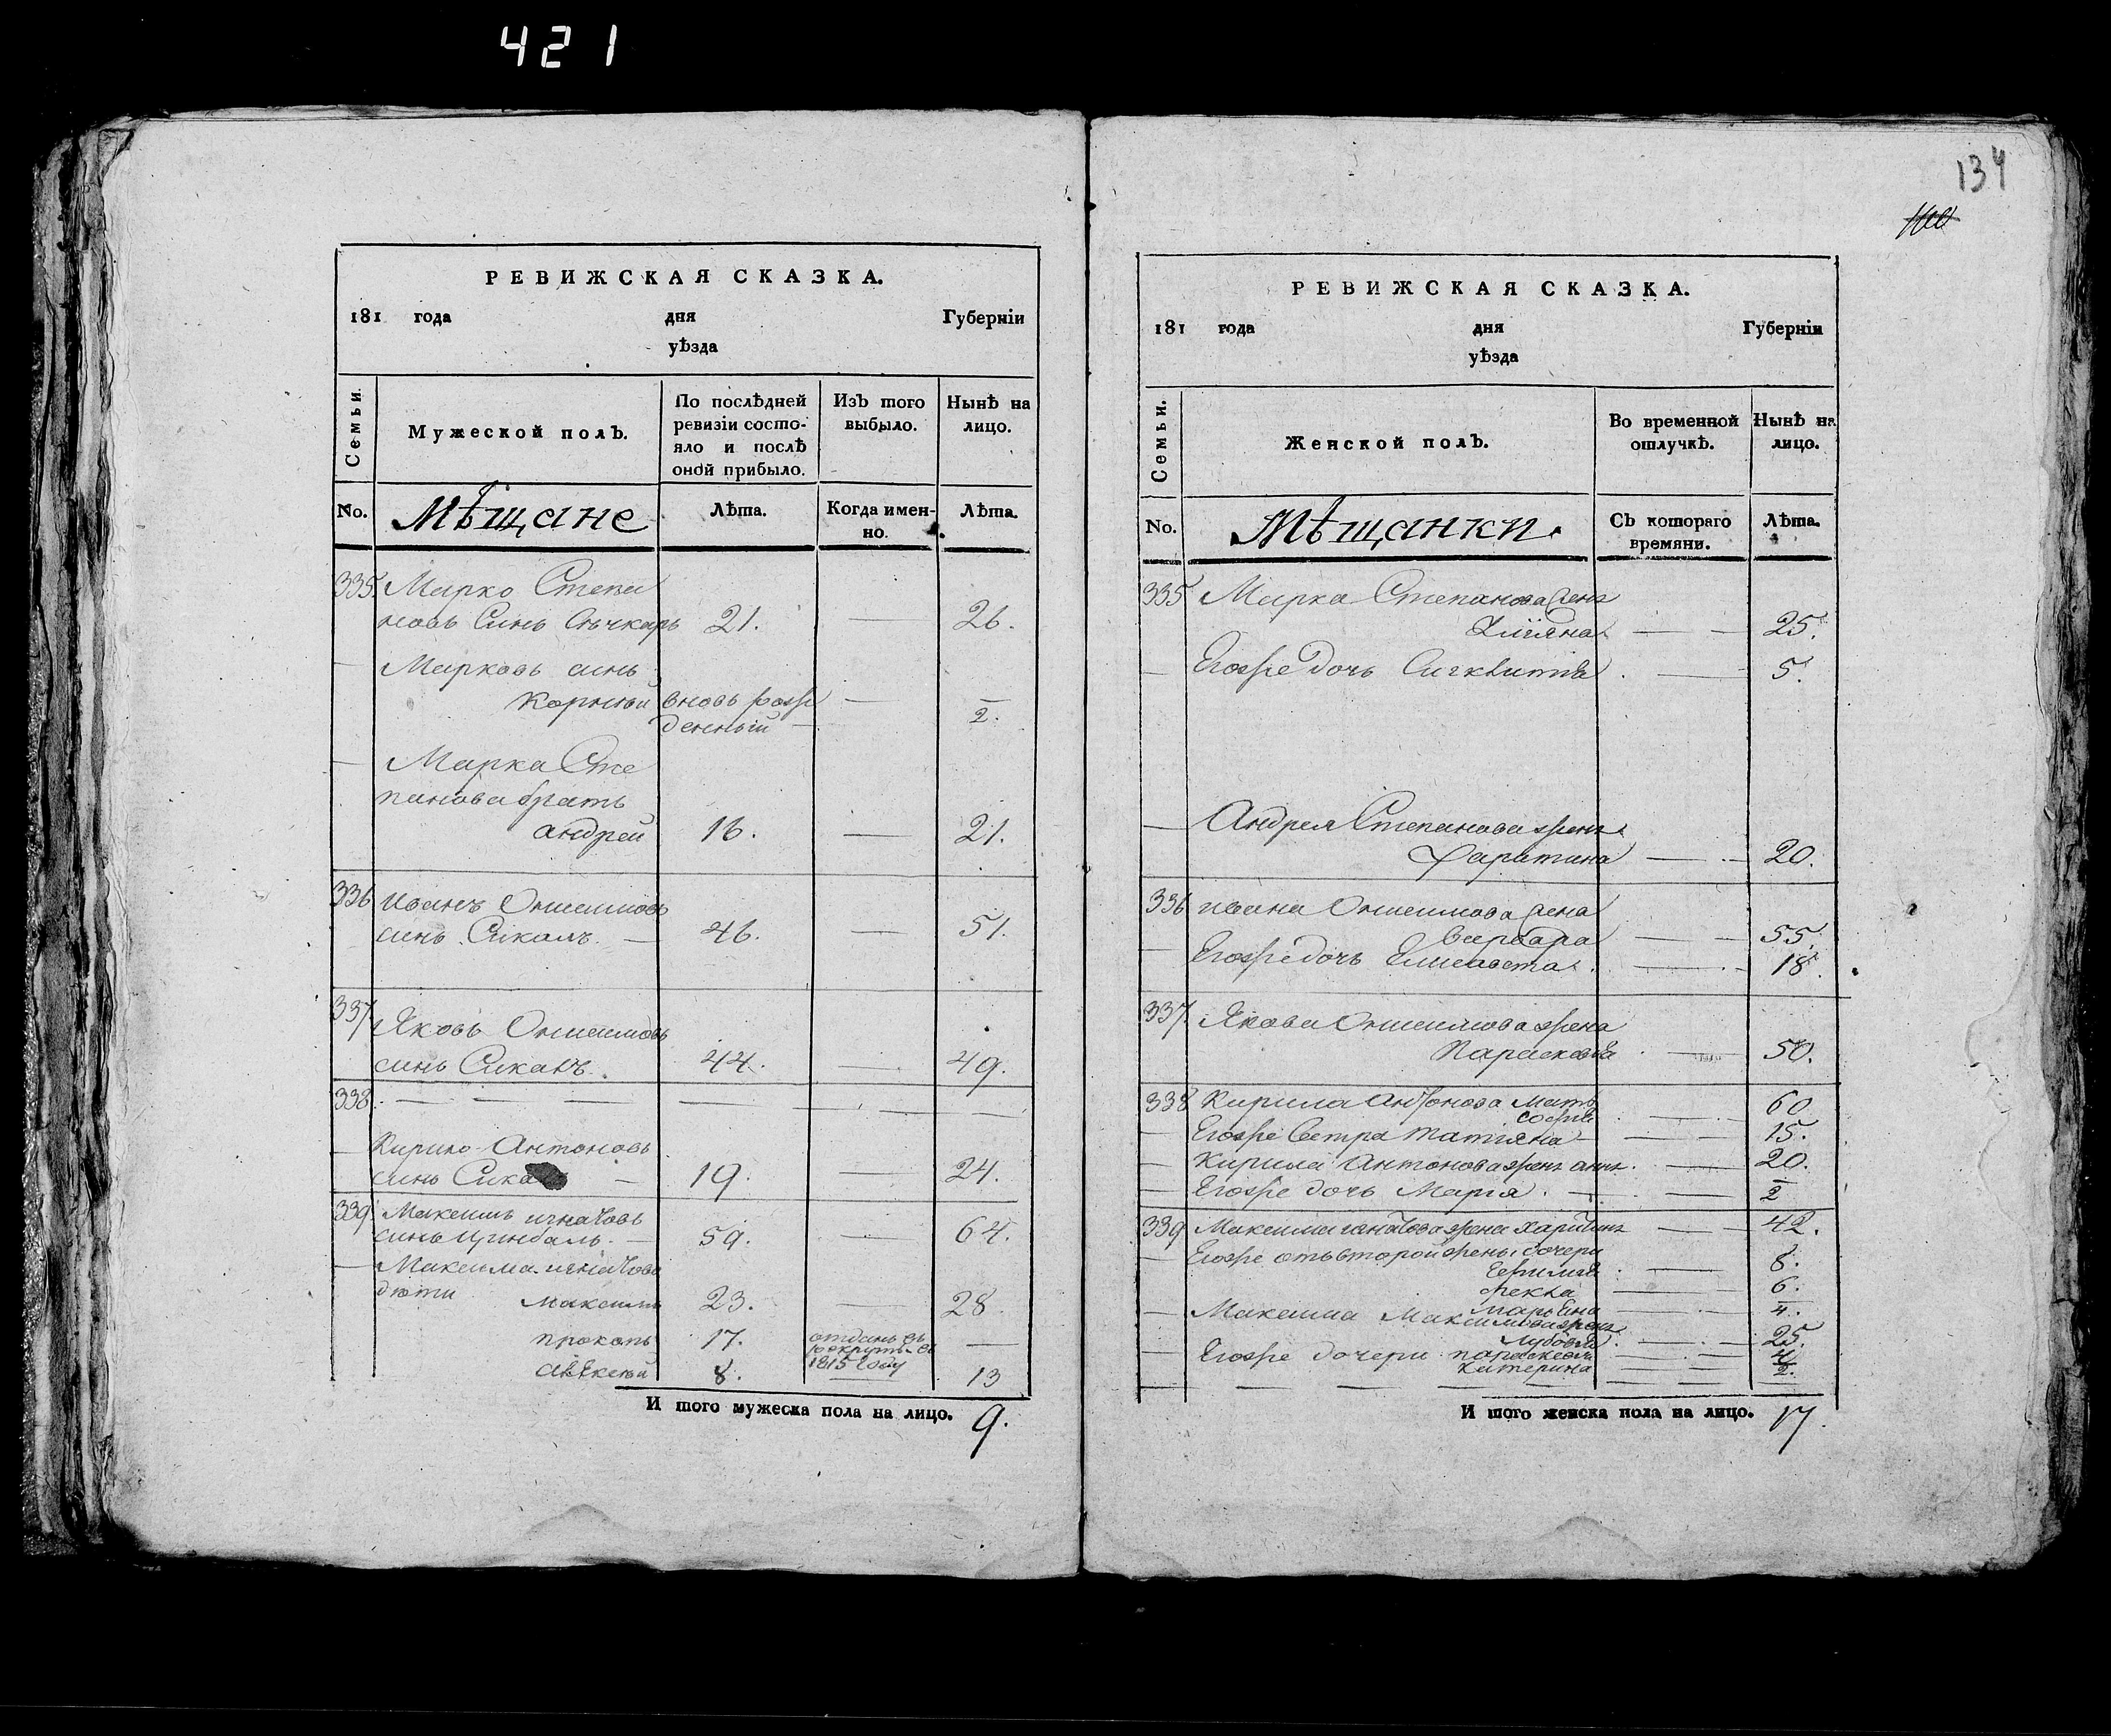 421
РЕВИЖСКАЯ СКАЗКА.
181 года дня Губерніи
уѣзда
Семьи.
Мужеской полъ.
По послѣдней ревизіи состо-
яло и послѣ
оной прибыло.
Изъ того
выбыло.
Нынѣ на
лицо.
No.
Мѣщане
Лѣта.
Когда имен-
но.
Лѣта.
335. Марко Степа
новъ Синъ 21. — 26.
— Марковъ синъ
Корнѣй вновь рожде
денный — — 2.
— Марка Сте
панова братъ
андрей 16. — 21.
336 Иванъ Онисимовъ
синъ — 46. — 51.
337 Яковъ Онисимовъ
синъ 44. — 49.
338
— Кирило Антоновъ
синъ — 19. — 24.
339. Максимъ игнатовъ
синъ Цимбалъ. — 59. — 64.
— Максима игнатова
дѣти Максимъ 23. — 28
прокопъ 17. отданъ въ
рекруты въ
1815 Году —
8. — 13
И того мужеска пола на лицо. 9.
134
РЕВИЖСКАЯ СКАЗКА.
181 года дня Губерніи
уѣзда
Семьи.
Женской полъ.
Во временной
отлучкѣ.
Нынѣ на
лицо.
No.
Мѣщанки.
Съ котораго
времяни.
Лѣта.
335 Марка Степанова жена
Уліяна — 25.
— Егоже дочь — 5.
— Андрея Степанова жена
— 20.
336 ивана Онисимова жена
варвара — 55.
— Егоже дочь Елисавета. — 18.
337. Якова Онисимова жена
Парасковія — 50.
338 Кирила Антонова мать
софія — 60
— Егоже Сестра татіяна — 15.
— Кирила Антонова жена анна. — 20.
— Егоже дочь Марія. — 2
339 Максима игнатова жена харитина — 42.
— Егоже отъ второй жены дочери
Ефимія — 8.
фекла — 6.
4.
— Максима Максимова жена
Любовія — 25.
— Егоже дочери параскевія 4
катерина 2.
И того женска пола на лицо. 17.